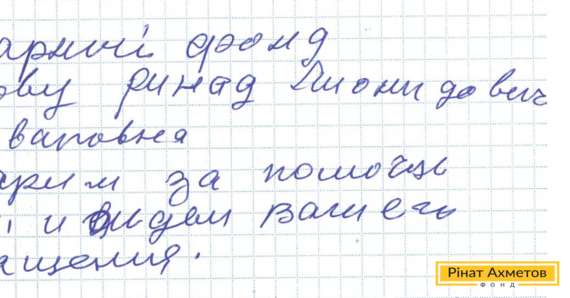 арний фонд
ову Ринад Лионидович
варовня
арим за помощь
и видем вашего
ащения.
Рінат Ахметов
ФОНД